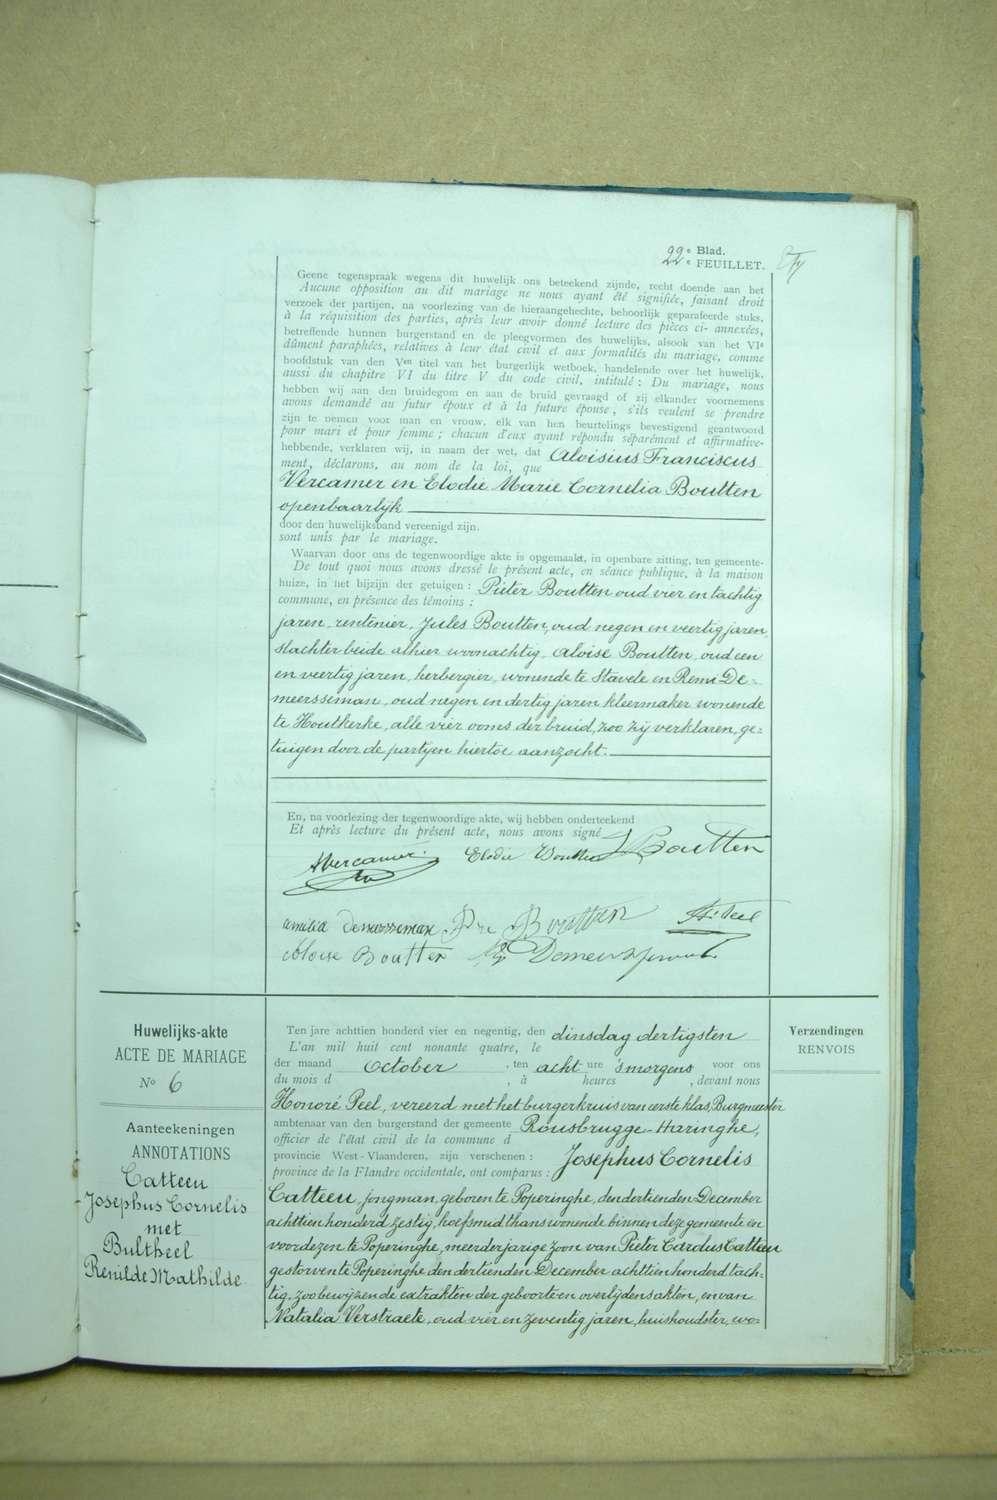 22e Blad.
e FEUILLET.
Geene tegenspraak wegens dit huwelijk ons beteekend zijnde, recht doende aan het
Aucune opposition au dit mariage ne nous ayant été signifiée, faisant droit
verzoek der partijen, na voorlezing van de hieraangehechte, behoorlijk geparafeerde stuks,
à la réquisition des parties, après leur avoir donné lecture des pièces ci-annexées,
betreffende hunnen burgerstand en de pleegvormen des huwelijks, alsook van het VIe
dûment paraphées, relatives à leur état civil et aux formalités du mariage, comme
hoofdstuk van den Ven titel van het burgerlijk wetboek, handelende over het huwelijk,
aussi du chapitre VI du titre V du code civil, intitulé : Du mariage, nous
hebben wij aan den bruidegom en aan de bruid gevraagd of zij elkander voornemens
avons demandé au futur époux et à la future épouse, s'ils veulent se prendre
zijn te nemen voor man en vrouw, elk van hen beurtelings bevestigend geantwoord
pour mari et pour femme ; chacun d'eux ayant répondu séparément et affirmative-
hebbende, verklaren wij, in naam der wet, dat Aloisius Franciscus
ment, déclarons, au nom de la loi, que
Vercamer en Elodie Marie Cornelia Boutten
openbaarlijk
door den huwelijksband vereenigd zijn.
sont unis par le mariage.
Waarvan door ons de tegenwoordige akte is opgemaakt, in openbare zitting, ten gemeente-
De tout quoi nous avons dressé le présent acte, en séance publique, à la maison
huize, in het bijzijn der getuigen : Pieter Boutten oud vier en tachtig
commune, en présence des témoins :
jaren, rentenier, Jules Boutten, oud negen en veertig jaren,
slachter beide alhier woonachtig, Aloise Boutten, oud een
en veertig jaren, herbergier, wonende te Stavele en Remi De-
meersseman, oud negen en dertig jaren kleermaker wonende
te Houtkerke, alle vier ooms der bruid, zoo zij verklaren, ge-
tuigen door de partijen hiertoe aanzocht.
En, na voorlezing der tegenwoordige akte, wij hebben onderteekend
Et après lecture du présent acte, nous avons signé
AVercamer. Elodie Boutten J Boutten
Pre Boutten H. Peel
Aloise Boutten
Huwelijks-akte
ACTE DE MARIAGE
No 6
Aanteekeningen
ANNOTATIONS
Catteeu
Josephus Cornelis
met
Bultheel
Renilde Mathilde
Ten jare achttien honderd vier en negentig, den dinsdag dertigsten
L'an mil huit cent nonante quatre, le
der maand October, ten acht ure 's morgens voor ons
du mois d , à heures , devant nous
Honoré Peel, vereerd met het burgerkruis van eerste klas, Burgmeester
ambtenaar van den burgerstand der gemeente Rousbrugge-Haringhe,
officier de l'état civil de la commune d
provincie West-Vlaanderen, zijn verschenen : Josephus Cornelis
province de la Flandre occidentale, ont comparus :
Catteeu, jongman, geboren te Poperinghe, den dertienden December
achttien honderd zestig, hoefsmid thans wonende binnen deze gemeente en
voordezen te Poperinghe, meerderjarige zoon van Pieter Carolus Catteeu
gestorven te Poperinghe den dertienden December achttien honderd tach-
tig, zoo bewijzen de extrakten der geboorte en overlijdens akten, en van
Natalia Verstraete, oud vier en zeventig jaren, huishoudster, wo-
Verzendingen
RENVOIS